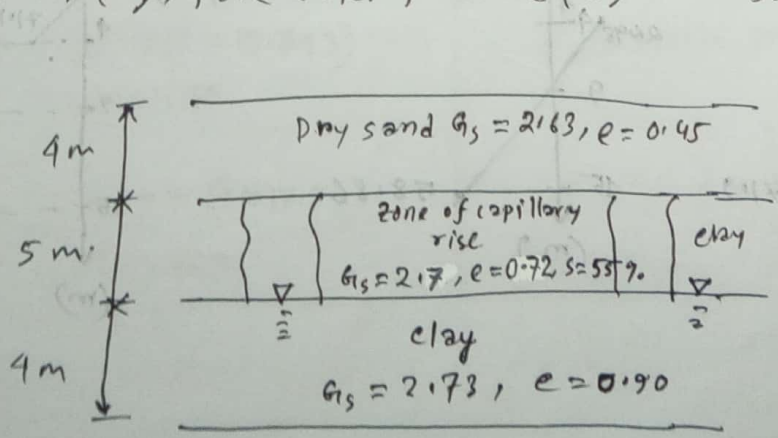 4m
Dry sand Gs = 2.63, e = 0.45
5m.
zone of capillary
rise
Gs = 2.7, e = 0.72, s = 55%.
clay
4m
clay
Gs = 2.73, e = 0.90